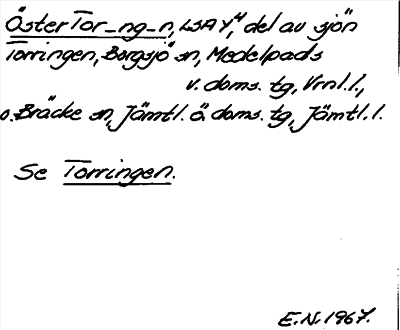 ÖsterTor_ng_n, LSA Y4, del av sjön
Torringen, Borgsjö sn, Medelpads
v. doms. tg, Vrnl. l.,
o. Bräcke sn, Jämtl. ö. doms. tg, Jämtl. l.
Se Torringen.
E.N. 1967.